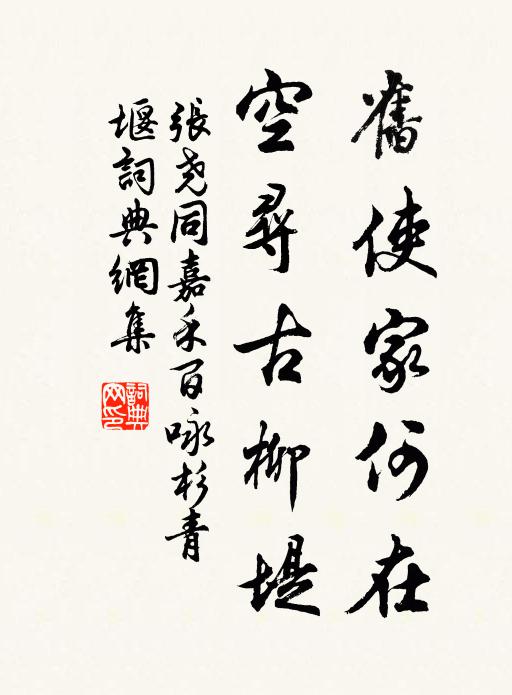 舊使家何在
空尋古柳堤
張尧同嘉禾百咏杉青
堰詞典網集
詞典
网印